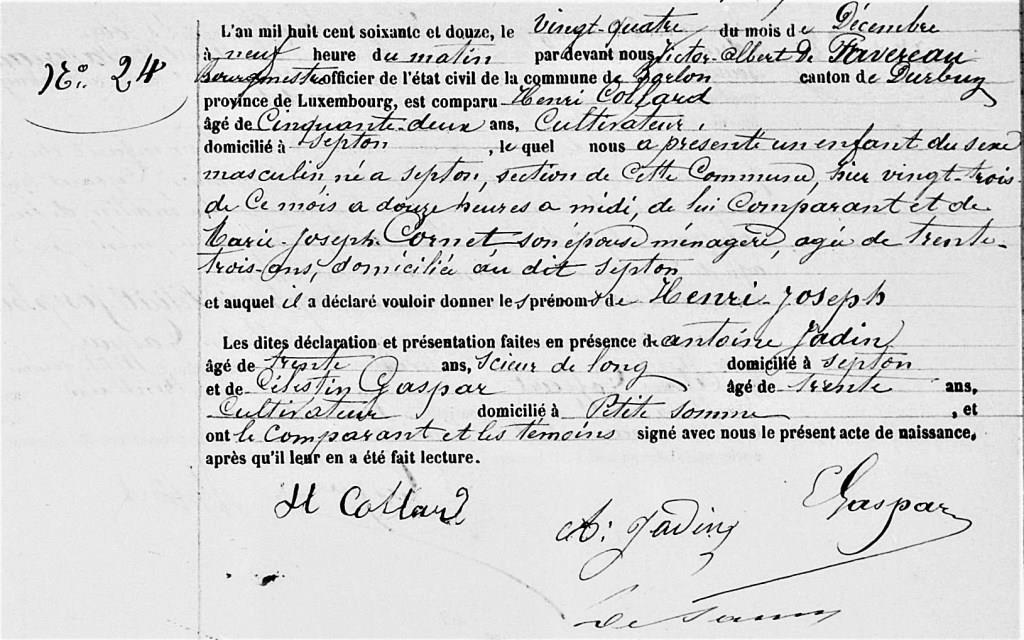 N° 24
L'an mil huit cent soixante et douze, le vingt-quatre du mois de Décembre
à neuf heure du matin par devant nous Victor-Albert de Favereau
Bourgmestre officier de l'état civil de la commune de canton de Durbuy
province de Luxembourg, est comparu Henri Collard
âgé de Cinquante-deux ans, Cultivateur,
domicilié à Septon, le quel nous a présenté un enfant du sexe
masculin né a Septon, section de Cette Commune, hier vingt-trois
de Ce mois a douze heures a midi, de lui Comparant et de
Marie-Joseph Cornet son épouse ménagère, agée de trente-
trois-ans, domiciliée au dit Septon
et auquel il a déclaré vouloir donner les prénoms de Henri-Joseph
Les dites déclaration et présentation faites en présence de antoine Jadin
âgé de trente ans, scieur de long domicilié à Septon
et de Célestin Gaspar âgé de trente ans,
Cultivateur domicilié à Petite Somme, et
ont le Comparant et les témoins signé avec nous le présent acte de naissance,
après qu'il leur en a été fait lecture.
H Collard
A: Jadin
C Gaspar